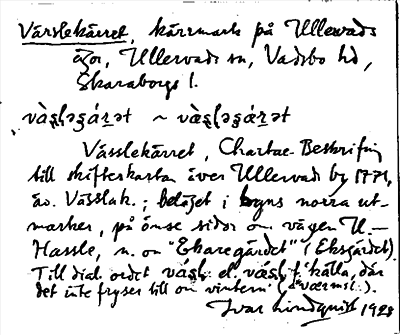 Värslekärret, kärrmark på Ullervads
ägor, Ullervads sn, Vadsbo hd,
Skaraborgs l.
Vässlekärret, Chartae-Beskrifn
till skifteskartan över Ullervads by 1771,
äv. Vässlak.; beläget i byns norra ut-
marker, på ömse sidor om vägen U.—
Hassle, n. om "Ekaregärdet" (Eksgärdet)
Till dial. ordet el. f. 'källa, där
det inte fryser till om vintern'
Ivar Lindquist 1923